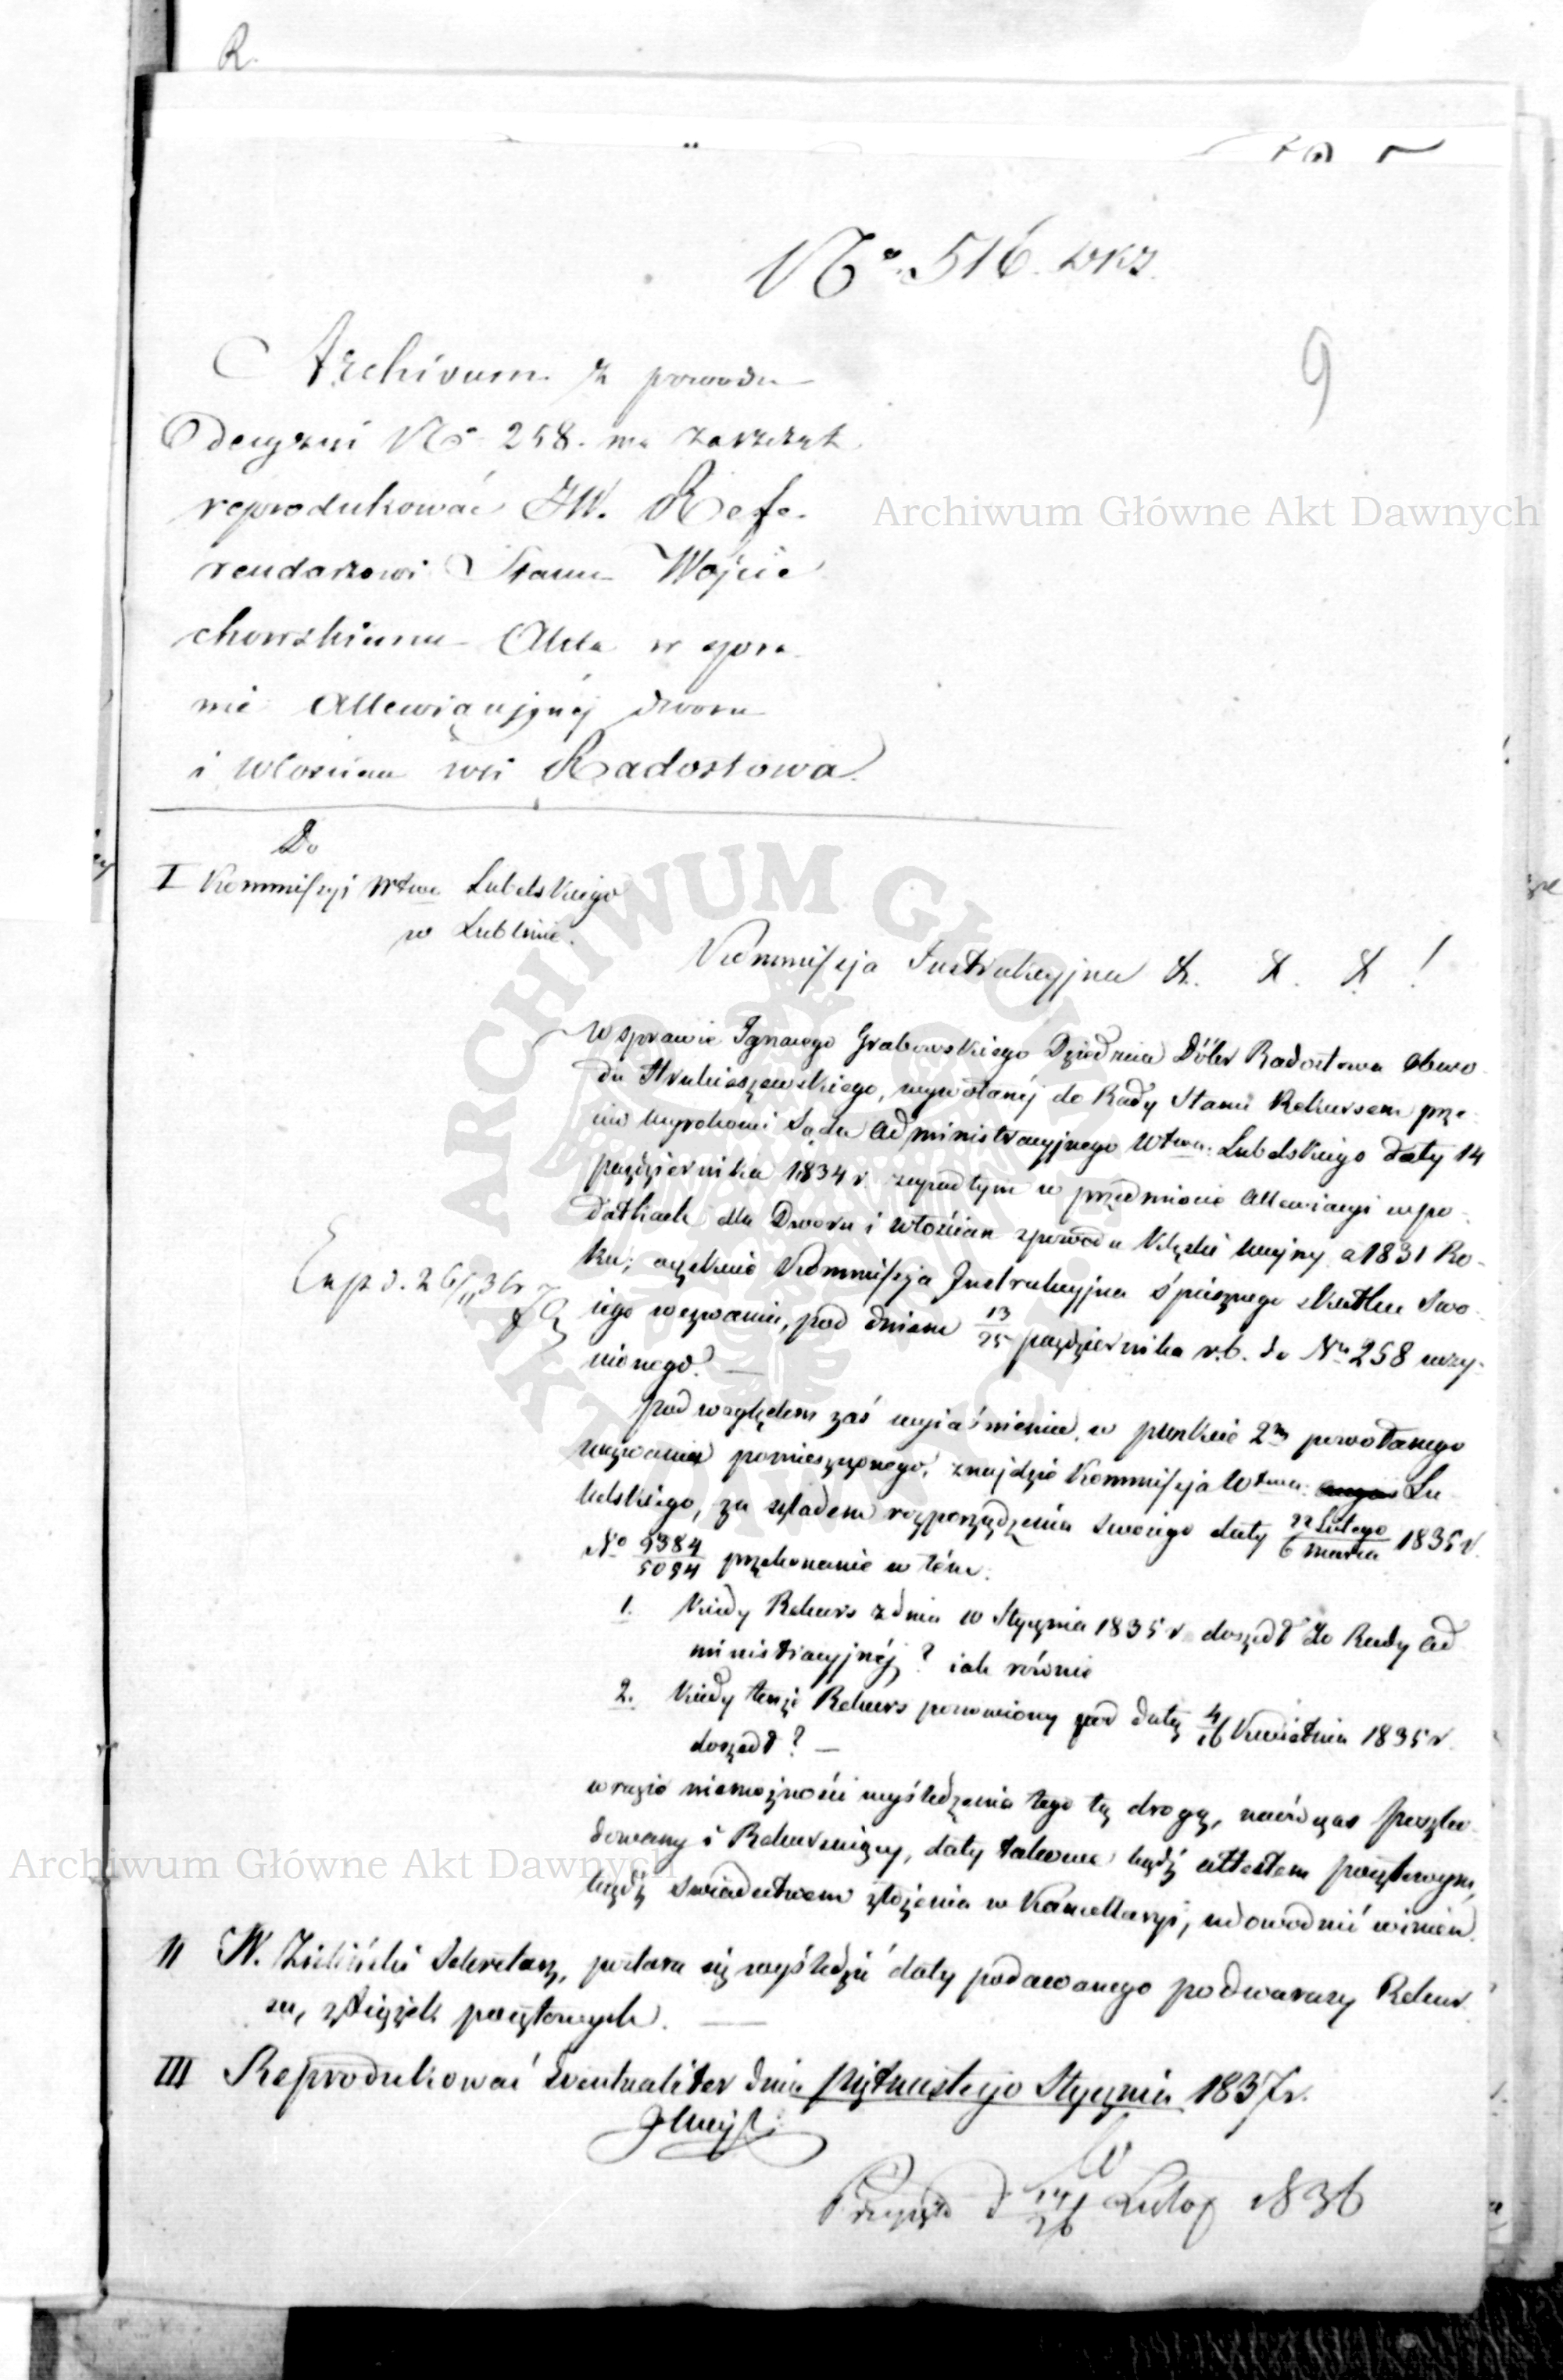 R.
No. 516. wks.
9
Archivum z powodu
Decyzyi No 258. ma zaszczyt
reprodukować JW. Refe-
rendarzowi Stanu Wojcie
chowskiemu Akta w spra-
wie Allewiacyjnéj dworu
i Włościan wsi Radostowa.
Do
I Kommissyi Wtwa Lubelskiego
w Lublinie.
Kommissja Instrukcyjna &. &. &. !
W sprawie Ignacego Grabowskiego Dziedzica Dóbr Radostowa Obwo-
du Hrubieszowskiego, wywołanéj do Rady Stanu Rekursem prze-
ciw wyrokowi Sądu Administracyjnego Wtwa Lubelskiego daty 14
października 1834 r. zapadłym w przedmiocie Allewiacyi w po-
datkach dla Dworu i Włościan z powodu klęski wojny z 1831 Ro-
ku; oczekuie Kommissja Instrukcyjna śpiesznego skutku Swo-
iego wezwania, pod dniem 13/25 października r.b. do Nru 258 uczy-
nionego. —
Exp d. 26/11 36 r
Pod względem zaś wyiaśnienia, w punkcie 2m powołanego
wezwania pomieszczonego, znajdzie Kommissja Wtwa Lu-
belskiego, za śladem rozporządzenia swoiego daty 22 Lutego/6 Marca 1835 r.
No 5384/5094 przekonanie w tém:
1. Kiedy Rekurs z dnia 10 Stycznia 1835 r. doszedł do Rady Ad
ministracyjnéj? iak równie
2. Kiedy tenże Rekurs ponowiony pod datą 4/16 Kwietnia 1835 r.
doszedł? —
w razie niemożności wyśledzenia tego tą drogą, naówczas Poszko-
dowany i Rekursuiący, daty takowe bądź attestem pocztowym,
bądź świadectwem złożenia w Kancellaryi, udowodnić winien.
II W. Zieliński Sekretarz, postara się wyśledzić daty podawanego podwarazy Rekur
su, z Xiążek pocztowych. —
III Reprodukować eventualiter dnia piętnastego Stycznia 1837 r.
d 14/26 Lutego 1836
Archiwum Główne Akt Dawnych
Archiwum Główne Akt Dawnych
ARCHIWUM GŁÓWNE AKT DAWNYCH